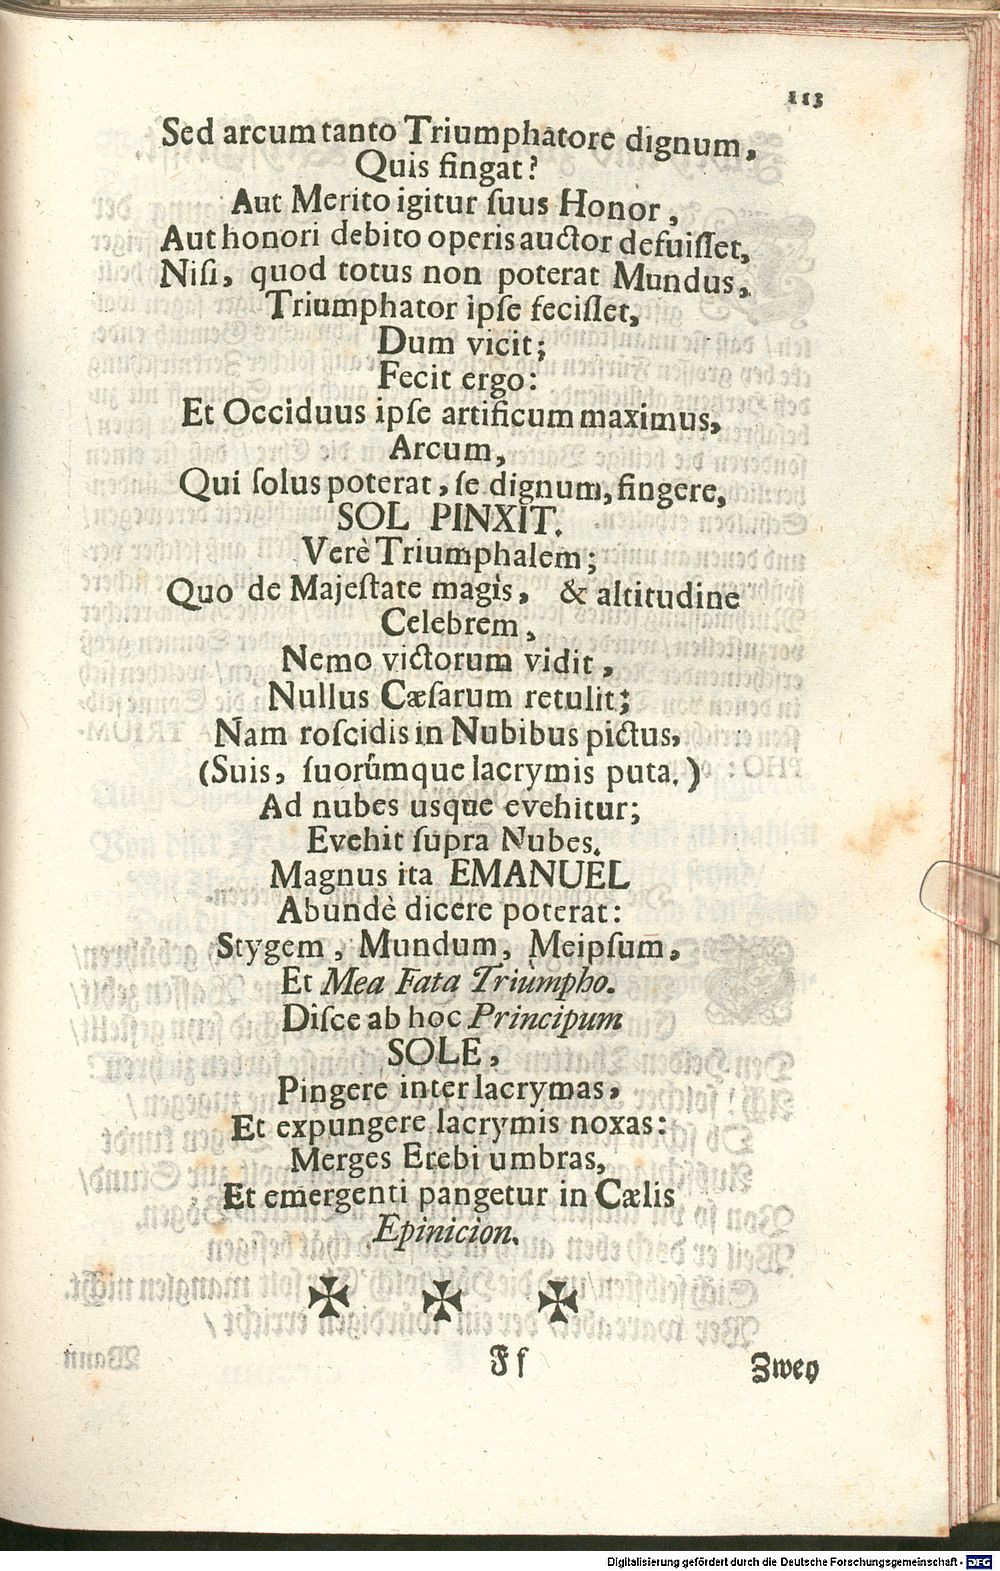 113
Sed arcum tanto Triumphatore dignum,
Quis fingat?
Aut Merito igitur ſuus Honor,
Aut honori debito operis auctor defuiſſet,
Niſi, quod totus non poterat Mundus,
Triumphator ipſe feciſſet,
Dum vicit;
Fecit ergo:
Et Occiduus ipſe artificum maximus,
Arcum,
Qui ſolus poterat, ſe dignum, fingere,
SOL PINXIT.
Verè Triumphalem;
Quo de Majeſtate magis, & altitudine
Celebrem,
Nemo victorum vidit,
Nullus Cæſarum retulit;
Nam roſcidis in Nubibus pictus,
(Suis, ſuorúmque lacrymis puta.)
Ad nubes usque evehitur;
Evehit ſupra Nubes.
Magnus ita EMANUEL
Abundè dicere poterat:
Stygem, Mundum, Meipſum,
Et Mea Fata Triumpho.
Diſce ab hoc Principum
SOLE,
Pingere inter lacrymas,
Et expungere lacrymis noxas:
Merges Erebi umbras,
Et emergenti pangetur in Cælis
Epinicion.
Ff
Zwey
Digitalisierung gefördert durch die Deutsche Forschungsgemeinschaft - DFG